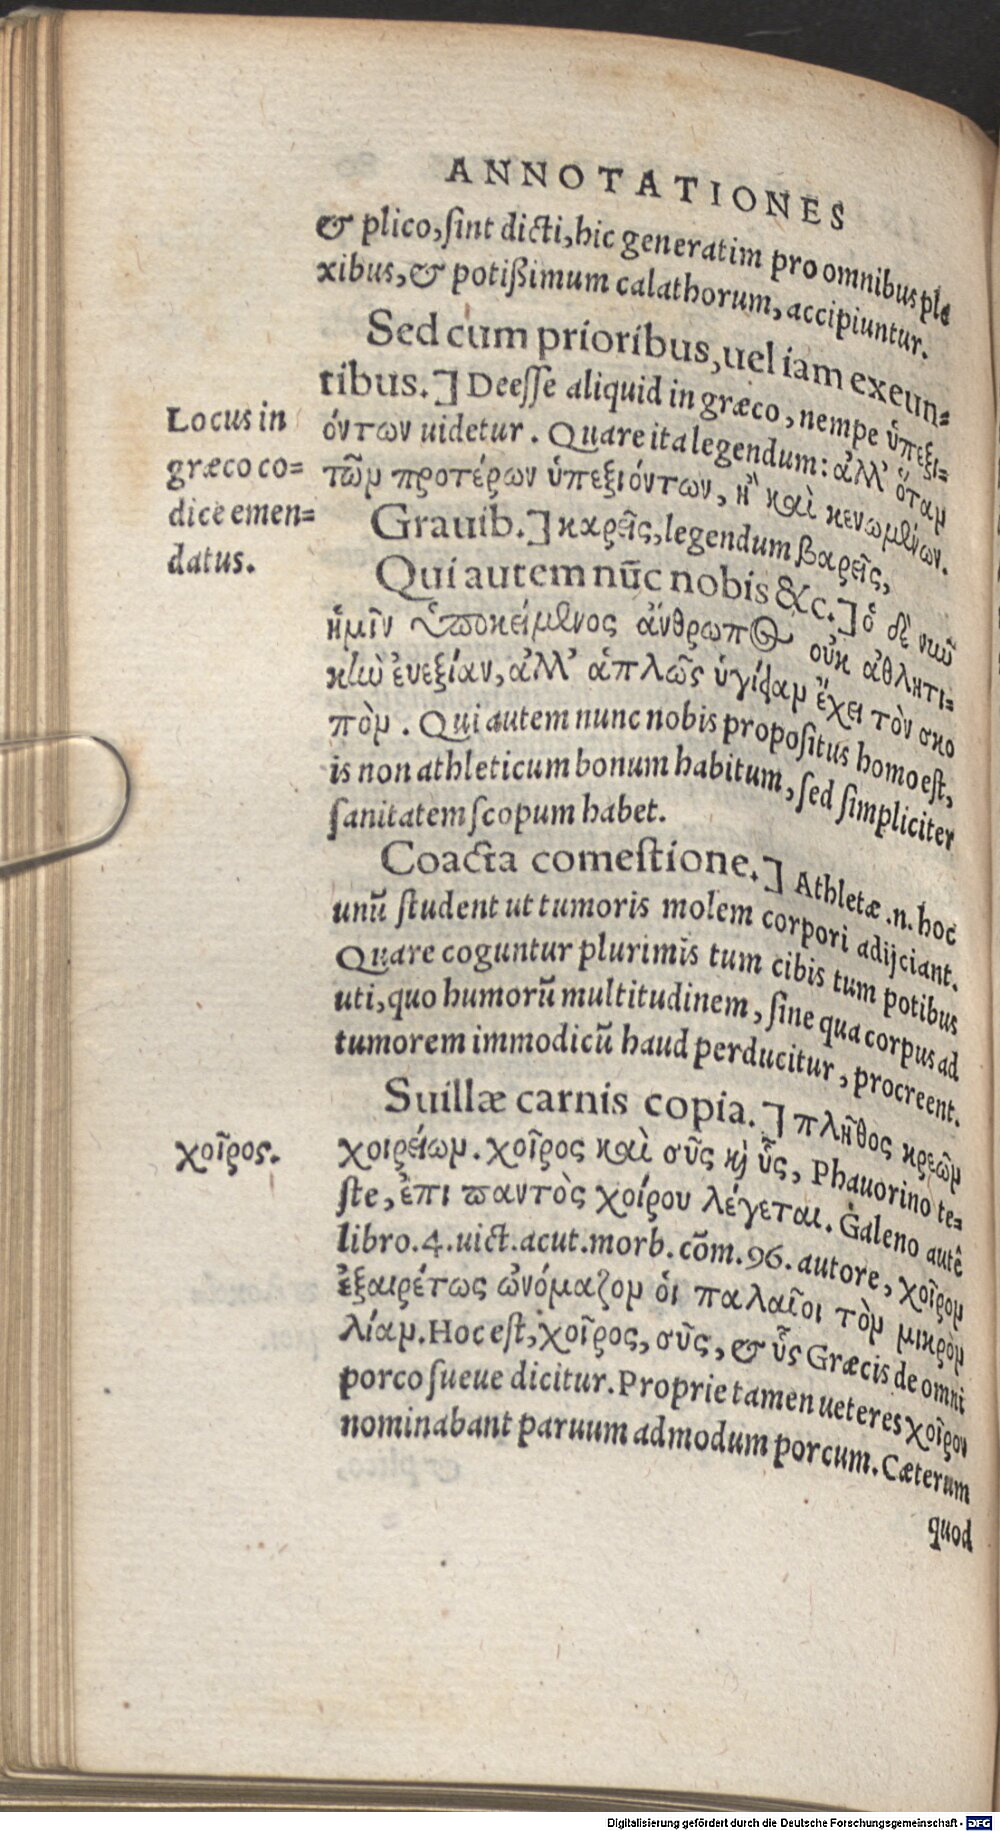 ANNOTATIONES
& plico, ſint dicti, hic generatim pro omnibus ple
xibus, & potißimum calathorum, accipiuntur.
Sed cum prioribus, uel iam exeun=
tibus.] Deeſſe aliquid in græco, nempe ὑπεξι=
όντων uidetur. Quare ita legendum: ἀλλ' ὅταμ
τῶμ προτέρων ὑπεξιόντων, ἢ καὶ κενωμένων.
Grauib.] καρεῖς, legendum βαρεῖς,
Qui autem nūc nobis &c.] ὁ δὲ νιῦ
ἡμῖν ὑποκείμενος ἄνθρωπος οὐκ ἀθλητι=
κὴν ἐυεξίαν, ἀλλ' ἁπλῶς ὑγίειαμ ἔχει τὸν σκο
πὸμ. Qui autem nunc nobis propoſitus homo eſt,
is non athleticum bonum habitum, ſed ſimpliciter
ſanitatem ſcopum habet.
Coacta comeſtione.] Athletæ .n. hoc
unū ſtudent ut tumoris molem corpori adijciant.
Quare coguntur plurimis tum cibis tum potibus
uti, quo humorū multitudinem, ſine qua corpus ad
tumorem immodicū haud perducitur, procreent.
Suillæ carnis copia.] πλῆθος κρεῶμ
χοιρείωμ. χοῖρος καὶ σῦς κ̀ ὗς, Phauorino te=
ſte, ἐπι παντὸς χοίρου λέγεται. Galeno autē
libro.4.uict.acut.morb.cōm.96.autore, χοῖρομ
ἐξαιρέτως ὠνόμαζομ ὁι παλαῖοι τὸμ μικρὸμ
λίαμ. Hoc eſt, χοῖρος, σῦς, & ὗς Græcis de omni
porco ſueue dicitur. Proprie tamen ueteres χοῖρου
nominabant paruum admodum porcum. Cæterum
quod
Locus in
græco co=
dice emen=
datus.
χοῖρος.
Digitalisierung gefördert durch die Deutsche Forschungsgemeinschaft - DFG